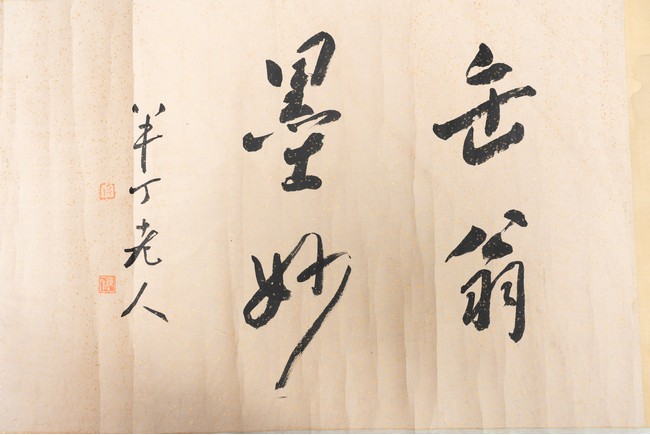 缶翁
墨妙
半丁老人